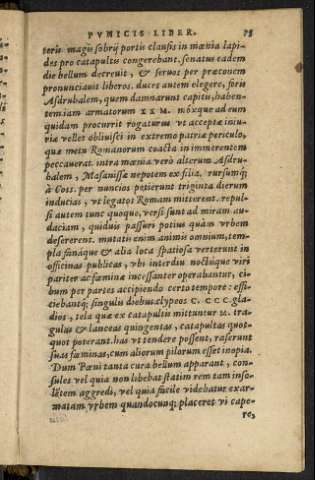 PVNICIS LIBER. 75
teris magis sobrij portis clausis in mœnia lapi-
des pro catapultis congerebant. senatus eadem
die bellum decreuit, & seruos per præconem
pronunciauit liberos. duces autem elegere, foris
Asdrubalem, quem damnarunt capitis, haben-
tem iam armatorum XX M. moxque ad eum
quidam procurrit rogaturus vt acceptæ iniu-
riæ vellet obliuisci in extremo patriæ periculo,
quæ metu Romanorum coacta in immerentem
peccauerat. intra mœnia verò alterum Asdru-
balem, Masanissæ nepotem ex filia. rursumq;
à Coss. per nuncios petierunt triginta dierum
inducias, vt legatos Romam mitterent. repul-
si autem tunc quoque, versi sunt ad miram au-
daciam, quiduis passuri potius quàm vrbem
desererent. mutatis enim animis omnium, tem-
pla fanáque & alia loca spatiosa verterunt in
officinas publicas, vbi interdiu noctúque viri
pariter ac fœminæ incessanter operabantur, ci-
bum per partes accipiendo certo tempore: effi-
ciebantq; singulis diebus clypeos C. CCC. gla-
dios, tela quæ ex catapultis mittuntur M. tra-
gulas & lanceas quingentas, catapultas quot-
quot poterant. has vt tendere possent, raserunt
suas fœminas, cum aliorum pilorum esset inopia.
Dum Pœni tanta cura bellum apparant, con-
sules vel quia non libebat statim rem tam inso-
lētem aggredi, vel quia facile videbatur exar-
matam vrbem quandocunq; placeret vi cape-
re,